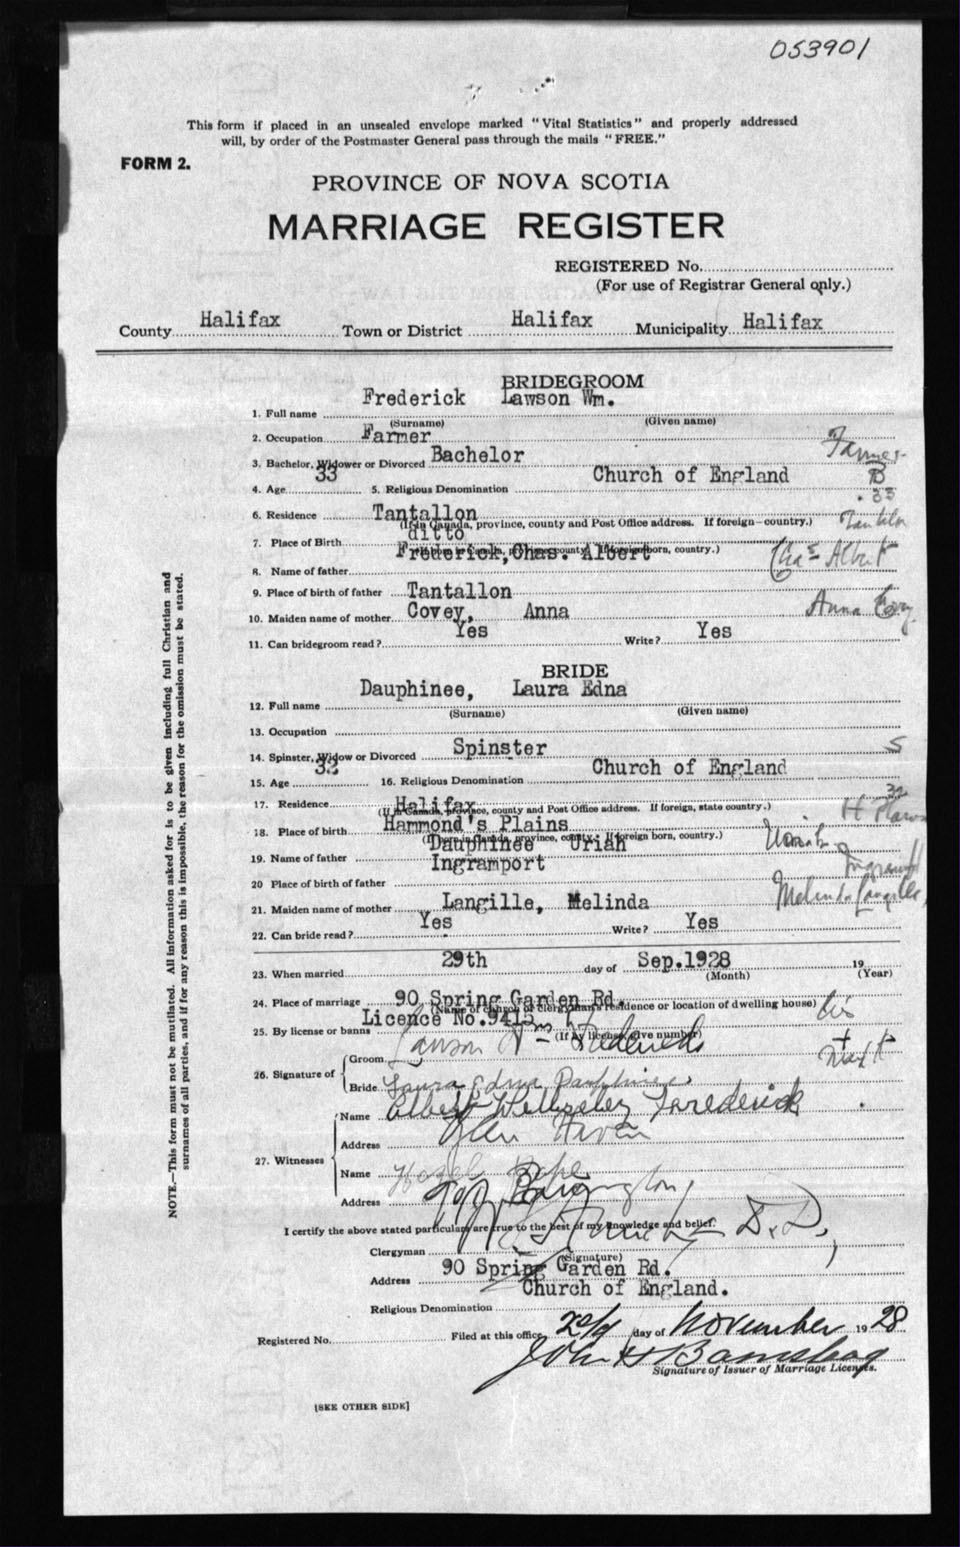 053901
This form if placed in an unsealed envelope marked "Vital Statistics" and properly addressed
will, by order of the Postmaster General pass through the mails "FREE."
FORM 2.
PROVINCE OF NOVA SCOTIA
MARRIAGE REGISTER
REGISTERED No.
(For use of Registrar General only.)
County Halifax Town or District Halifax Municipality Halifax
BRIDEGROOM
1. Full name Frederick Lawson Wm.
(Surname) (Given name)
2. Occupation Farmer
3. Bachelor, Widower or Divorced Bachelor Farmer B
4. Age 33 5. Religious Denomination Church of England 33
6. Residence Tantallon
(If in Canada, province, county and Post Office address. If foreign—country.)
7. Place of Birth ditto
8. Name of father Frederick, Chas. Albert Chas Albert
9. Place of birth of father Tantallon
10. Maiden name of mother Covey, Anna Anna Covey
11. Can bridegroom read? Yes Write? Yes
BRIDE
12. Full name Dauphinee, Laura Edna
(Surname) (Given name)
13. Occupation
14. Spinster, Widow or Divorced Spinster S
15. Age 32 16. Religious Denomination Church of England
17. Residence Halifax 32
(If in Canada, province, county and Post Office address. If foreign, state country.)
18. Place of birth Hammond's Plains H Plains
19. Name of father Dauphinee Uriah Uriah
20 Place of birth of father Ingramport Ingramport
21. Maiden name of mother Langille, Melinda Melinda Langille
22. Can bride read? Yes Write? Yes
23. When married 29th day of Sep.1928 19
(Month) (Year)
24. Place of marriage 90 Spring Garden Rd.
(Name of church or clergyman's residence or location of dwelling house)
25. By license or banns Licence No.9415 Lis
(If by license, give number)
26. Signature of Groom Lawson Wm Frederick
Bride Laura Edna Dauphinee
27. Witnesses Name Albert Wellesley Frederick
Address Glen Haven
Name Hazel
Address
I certify the above stated particulars are true to the best of my knowledge and belief.
Clergyman D.D.,
(Signature)
Address 90 Spring Garden Rd.
Religious Denomination Church of England.
Registered No. Filed at this office day of November 1928
John H Barnstead
Signature of Issuer of Marriage Licenses.
[SEE OTHER SIDE]
NOTE.—This form must not be mutilated. All information asked for is to be given including full Christian and
surnames of all parties, and if for any reason this is impossible, the reason for the omission must be stated.